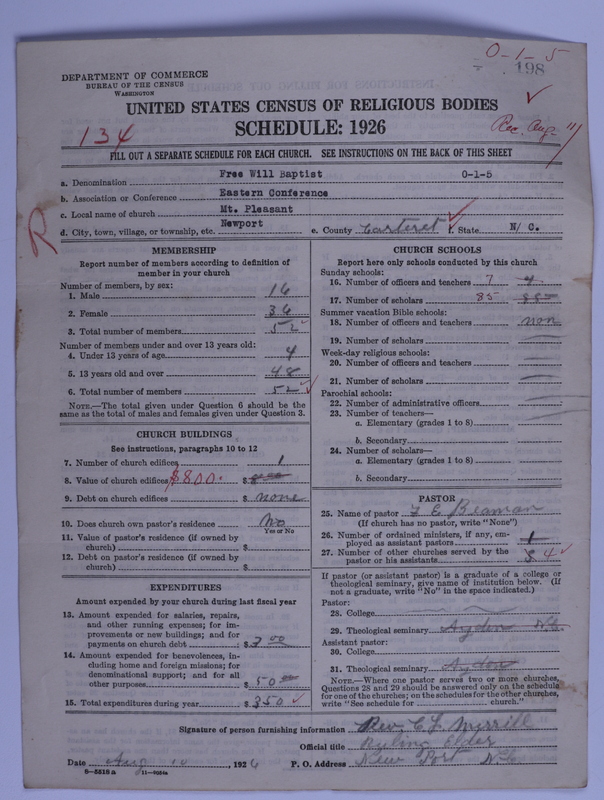 0-1-5
198
DEPARTMENT OF COMMERCE
BUREAU OF THE CENSUS
WASHINGTON
UNITED STATES CENSUS OF RELIGIOUS BODIES
SCHEDULE: 1926
134
Rec. Aug. 11
FILL OUT A SEPARATE SCHEDULE FOR EACH CHURCH. SEE INSTRUCTIONS ON THE BACK OF THIS SHEET
a. Denomination Free Will Baptist 0-1-5
b. Association or Conference Eastern Conference
c. Local name of church Mt. Pleasant
d. City, town, village, or township, etc. Newport e. County Carteret f. State N/ C.
R
MEMBERSHIP
Report number of members according to definition of
member in your church
Number of members, by sex:
1. Male 16
2. Female 36
3. Total number of members 52
Number of members under and over 13 years old:
4. Under 13 years of age 4
5. 13 years old and over 48
6. Total number of members 52
NOTE.—The total given under Question 6 should be the
same as the total of males and females given under Question 3.
CHURCH BUILDINGS
See instructions, paragraphs 10 to 12
7. Number of church edifices 1
8. Value of church edifices $800. $
9. Debt on church edifices $ none
10. Does church own pastor's residence No
Yes or No
11. Value of pastor's residence (if owned by
church) $
12. Debt on pastor's residence (if owned by
church) $
EXPENDITURES
Amount expended by your church during last fiscal year
13. Amount expended for salaries, repairs,
and other running expenses; for im-
provements or new buildings; and for
payments on church debt $ 300
14. Amount expended for benevolences, in-
cluding home and foreign missions; for
denominational support; and for all
other purposes $ 50
15. Total expenditures during year $ 350
CHURCH SCHOOLS
Report here only schools conducted by this church
Sunday schools:
16. Number of officers and teachers 7 4
17. Number of scholars 85
Summer vacation Bible schools:
18. Number of officers and teachers non
19. Number of scholars
Week-day religious schools:
20. Number of officers and teachers
21. Number of scholars
Parochial schools:
22. Number of administrative officers
23. Number of teachers—
a. Elementary (grades 1 to 8)
b. Secondary
24. Number of scholars—
a. Elementary (grades 1 to 8)
b. Secondary
PASTOR
25. Name of pastor E Beaman
(If church has no pastor, write "None")
26. Number of ordained ministers, if any, em-
ployed as assistant pastors 1
27. Number of other churches served by the
pastor or his assistants 3 4
If pastor (or assistant pastor) is a graduate of a college or
theological seminary, give name of institution below. (If
not a graduate, write "No" in the space indicated.)
Pastor:
28. College
29. Theological seminary Ayden N.C.
Assistant pastor:
30. College
31. Theological seminary Ayden
NOTE.—Where one pastor serves two or more churches,
Questions 28 and 29 should be answered only on the schedule
for one of the churches; on the schedules for the other churches,
write "See schedule for church."
Signature of person furnishing information Rev. C. L. Merrill
Official title Ruling Elder
Date Aug 10, 1926 P. O. Address New Port N.C.
8-5518 a